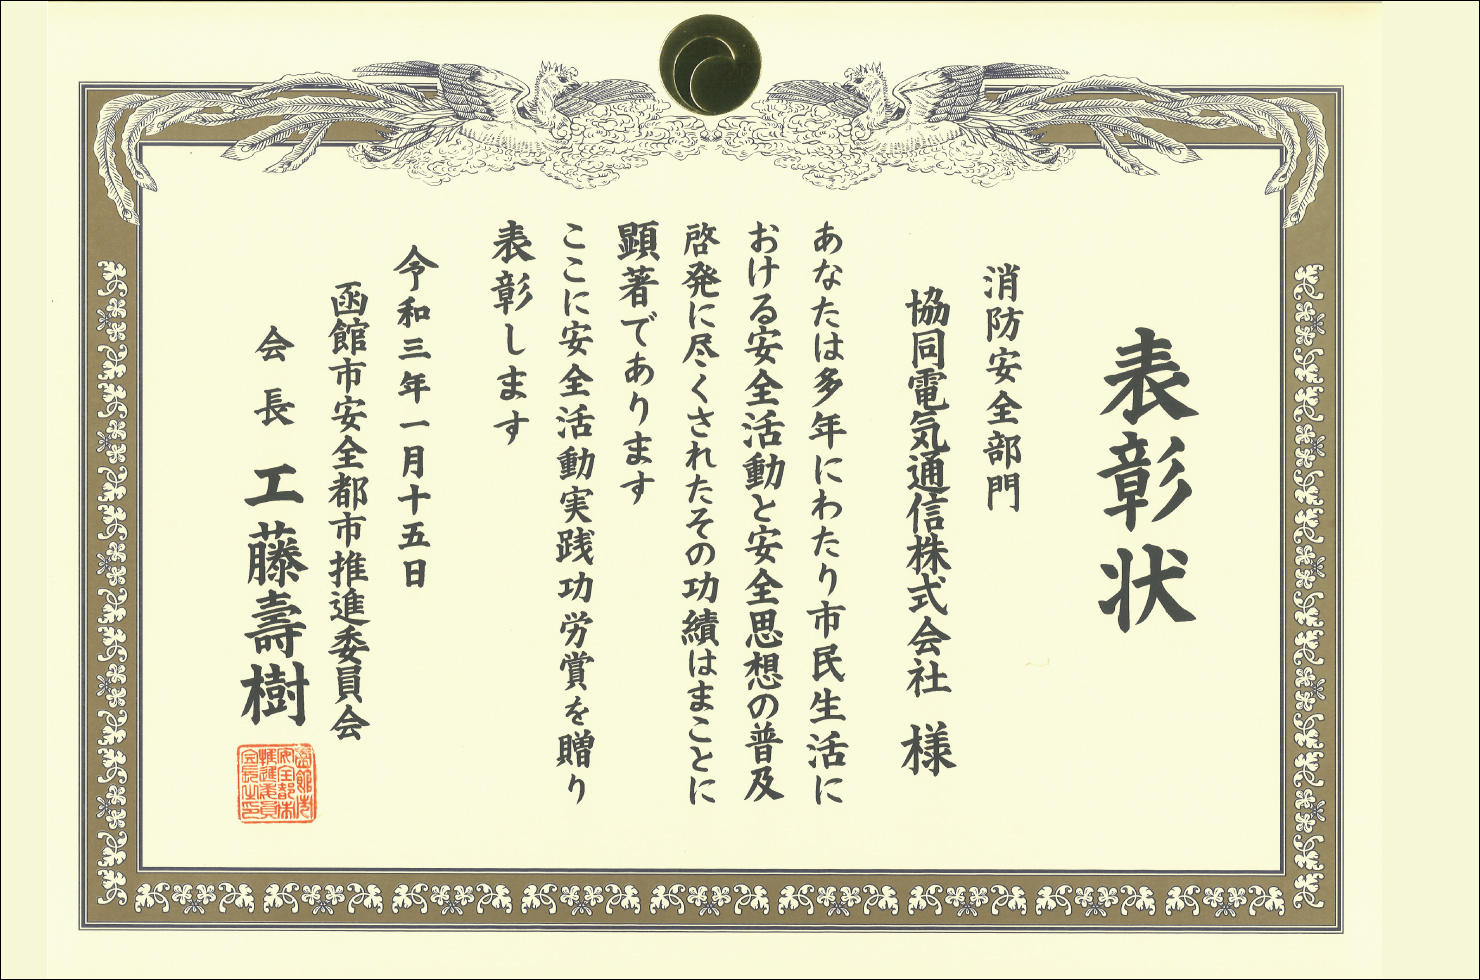 表彰状
消防安全部門
協同電気通信株式会社 様
あなたは多年にわたり市民生活に
おける安全活動と安全思想の普及
啓発に尽くされたその功績はまことに
顕著であります
ここに安全活動実践功労賞を贈り
表彰します
令和三年一月十五日
函館市安全都市推進委員会
会長 工藤壽樹
函館市
安全都市
推進委員
会長之印